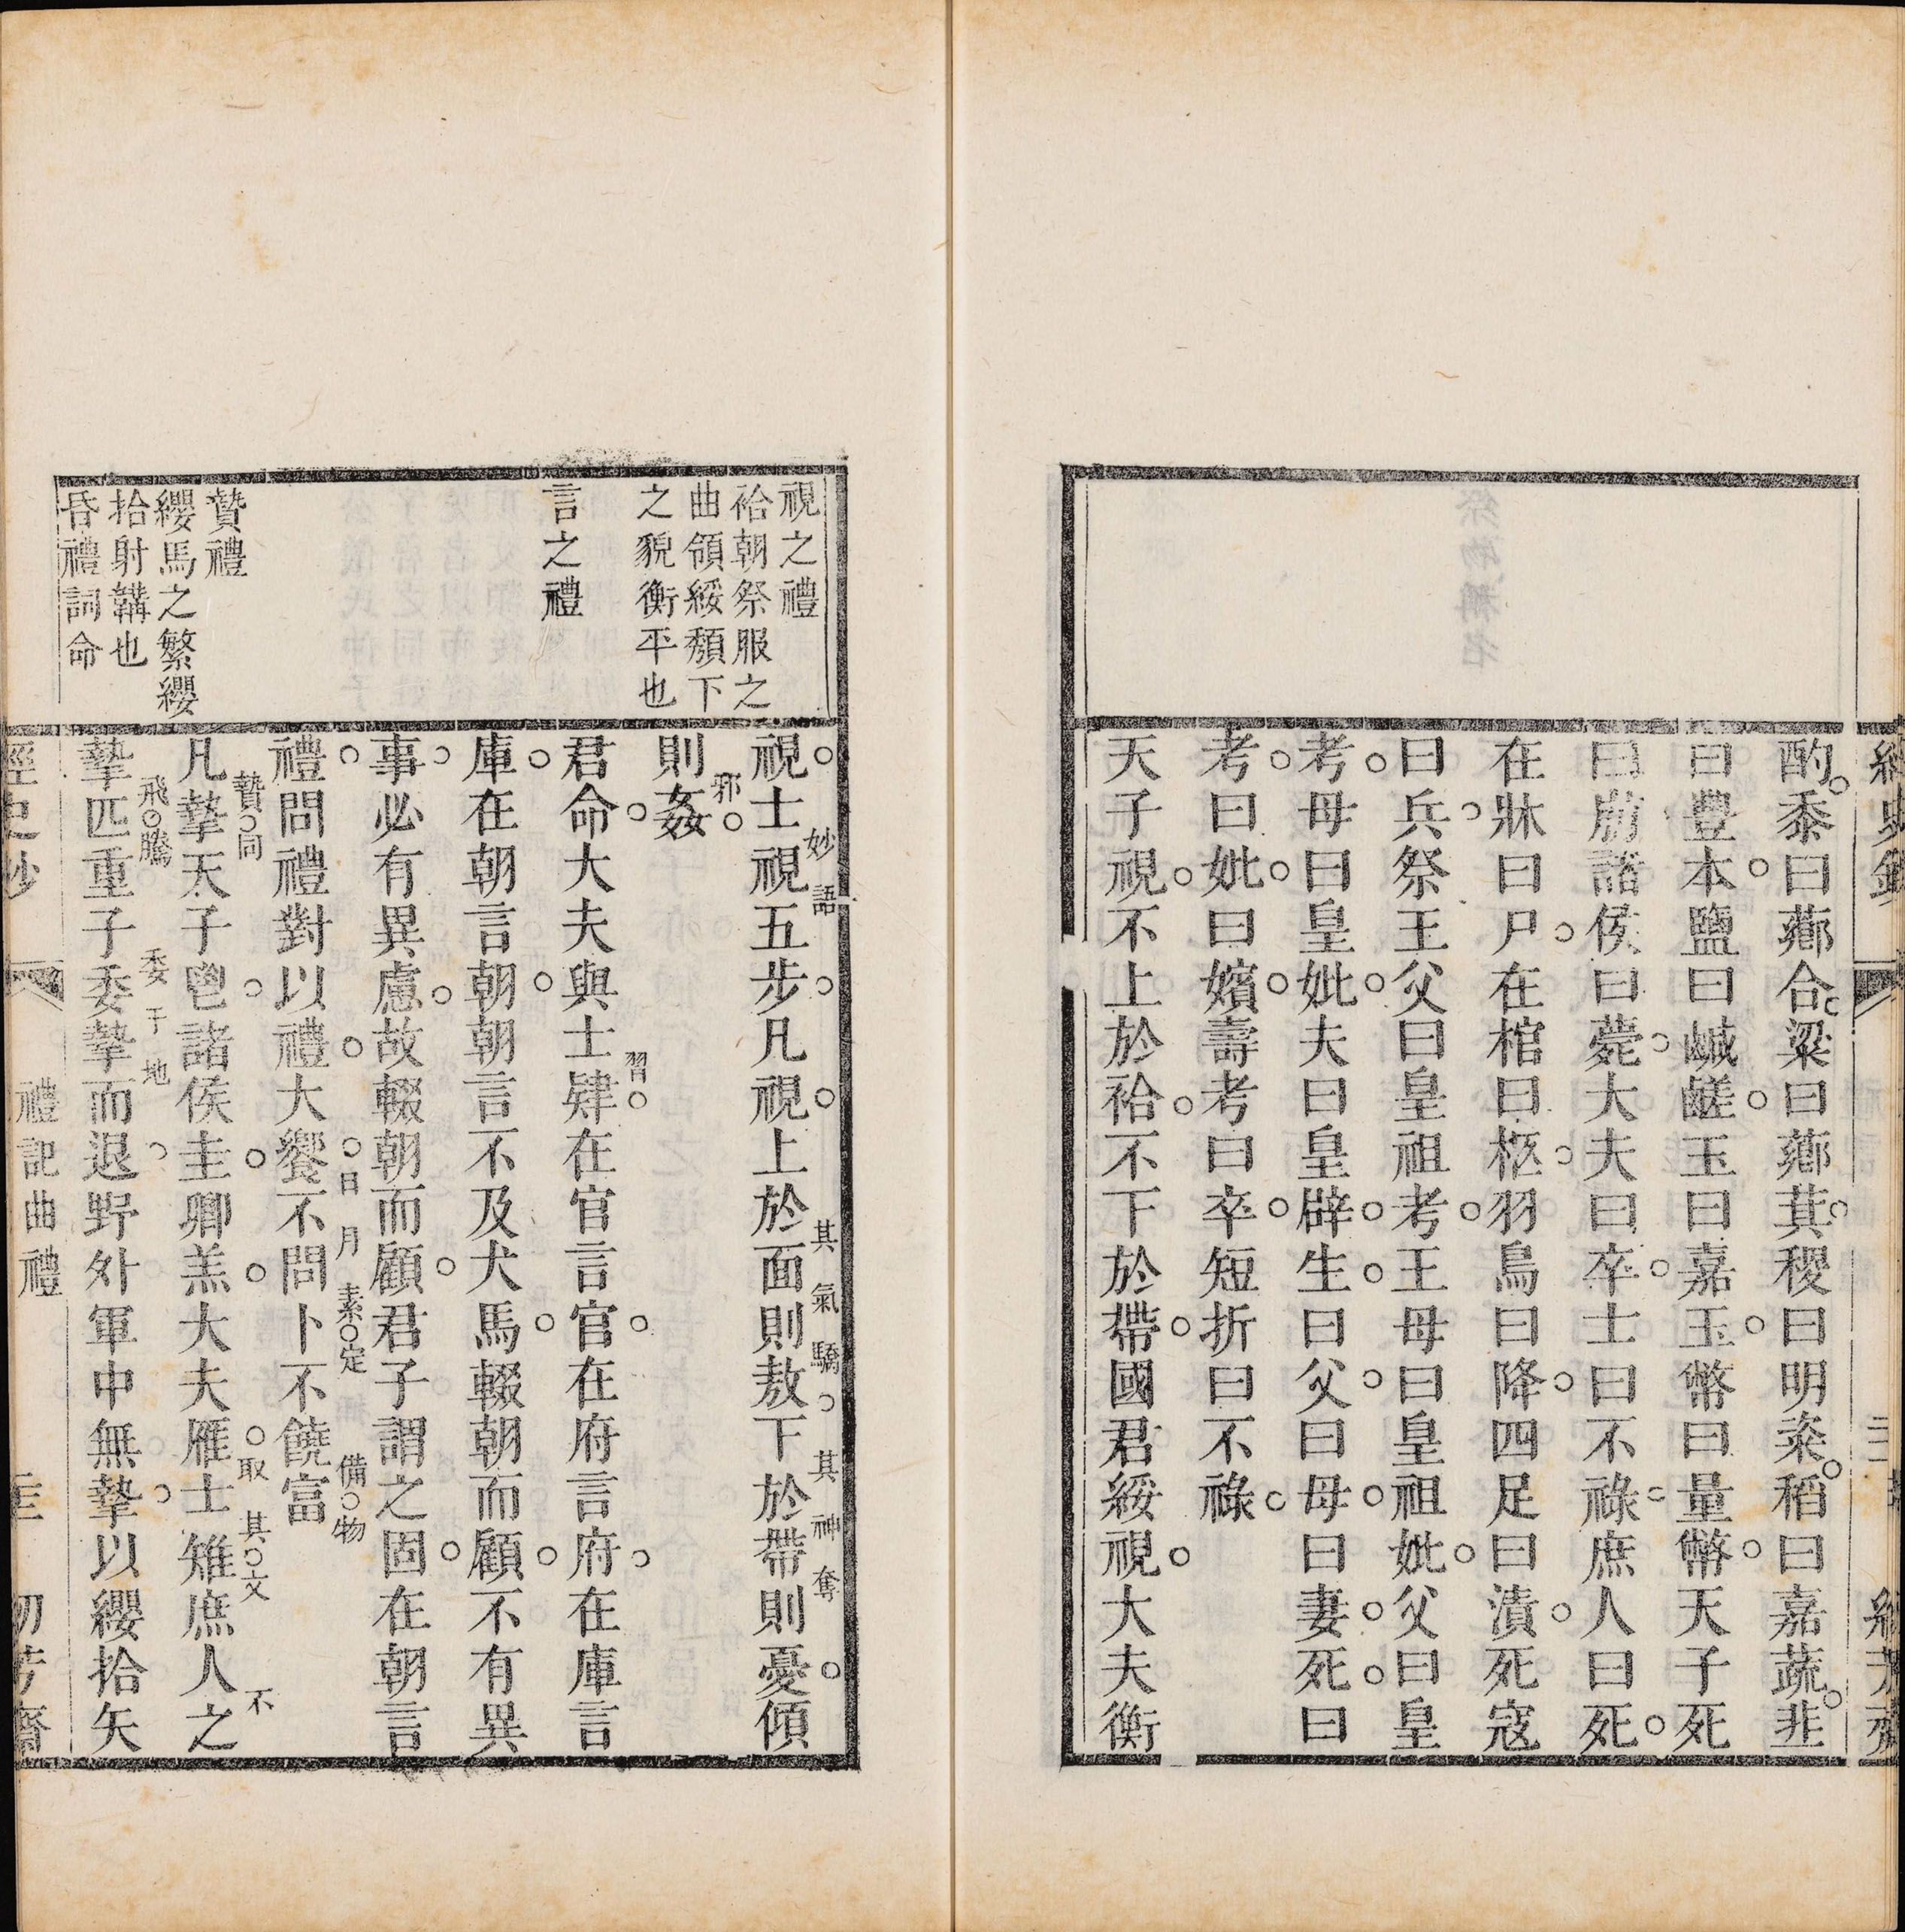 酌黍曰薌合粱曰薌萁稷曰明粢稻曰嘉蔬韭
曰豐本鹽曰鹹鹺玉曰嘉玉幣曰量幣天子死
曰崩諸侯曰薨大夫曰卒士曰不祿庶人曰死
在牀曰尸在棺曰柩羽鳥曰降四足曰漬死寇
曰兵祭王父曰皇祖考王母曰皇祖妣父曰皇
考母曰皇妣夫曰皇辟生曰父曰母曰妻死曰
考曰妣曰嬪壽考曰卒短折曰不祿
天子視不上於袷不下於帶國君綏視大夫衡
視之禮
袷朝祭服之
曲領綏頹下
之貌衡平也
言之禮
贄禮
纓馬之繁纓
拾射韝也
昏禮詞命
視士視五步凡視上於面則敖下於帶則憂傾
妙語
其氣驕
其神奪
則姦
邪
君命大夫與士肄在官言官在府言府在庫言
習
庫在朝言朝朝言不及犬馬輟朝而顧不有異
事必有異慮故輟朝而顧君子謂之固在朝言
禮問禮對以禮大饗不問卜不饒富
日月素定
備物
凡摯天子鬯諸侯圭卿羔大夫雁士雉庶人之
贄同
取其文
不
摯匹重子委摯而退野外軍中無摯以纓拾矢
飛騰
委于地
禮記曲禮